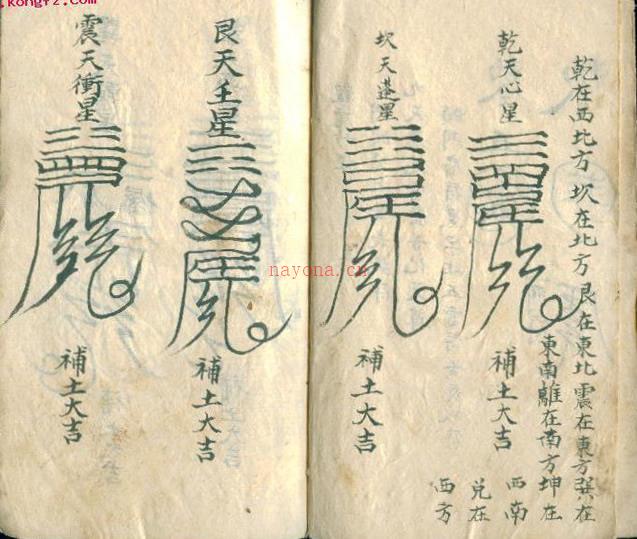 乾在西北方 坎在北方艮在東北 震在東方巽在
東南離在南方坤在
西南
兌在
西方
乾天心星
補土大吉
坎天蓬星
補土大吉
艮天壬星
補土大吉
震天衝星
補土大吉
nayona.cn